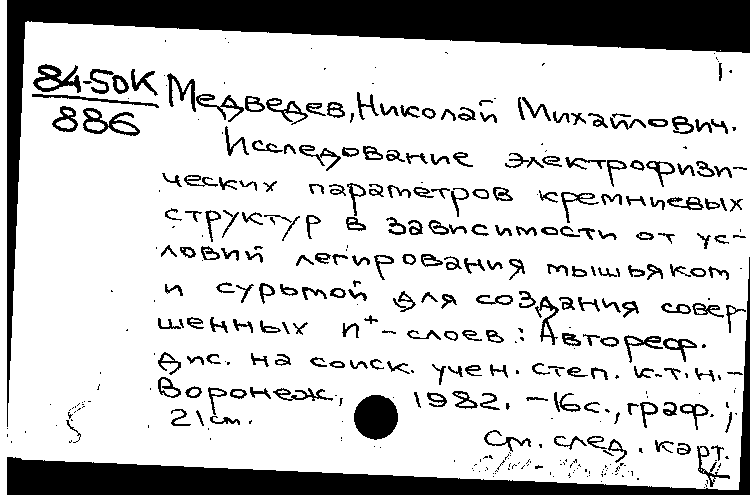 1.
84-50К
886
Медведев, Николай Михайлович.
Исследование электрофизи-
ческих параметров кремниевых
структур в зависимости от ус-
ловий легирования мышьяком
и сурьмой для создания совер-
шенных n⁺-слоев: Автореф.
дис. на соиск. учен. степ. к.т.н.-
Воронеж, 1982. -16с., граф.;
21см.
см. след. карт.